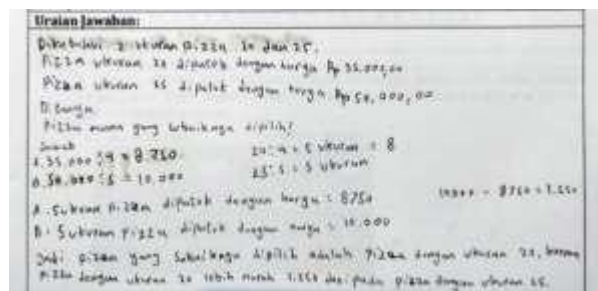 Uraian Jawaban:
Diketahui 2 ukuran pizza 20 dan 25.
Pizza ukuran 20 dipatok dengan harga Rp 35.000,00
Pizza ukuran 25 dipatok dengan harga Rp 50.000,00
Ditanya
Pizza mana yang sebaiknya dipilih?
Jawab
A. 35.000 : 4 = 8.750
20 : 4 = 5 ukuran
B. 50.000 : 5 = 10.000
25 : 5 = 5 ukuran
A. 5 ukuran pizza dipatok dengan harga : 8750
B. 5 ukuran pizza dipatok dengan harga : 10.000
10000 - 8750 = 1.250
Jadi pizza yang sebaiknya dipilih adalah pizza dengan ukuran 20, karena
pizza dengan ukuran 20 lebih murah 1.250 dari pada pizza dengan ukuran 25.